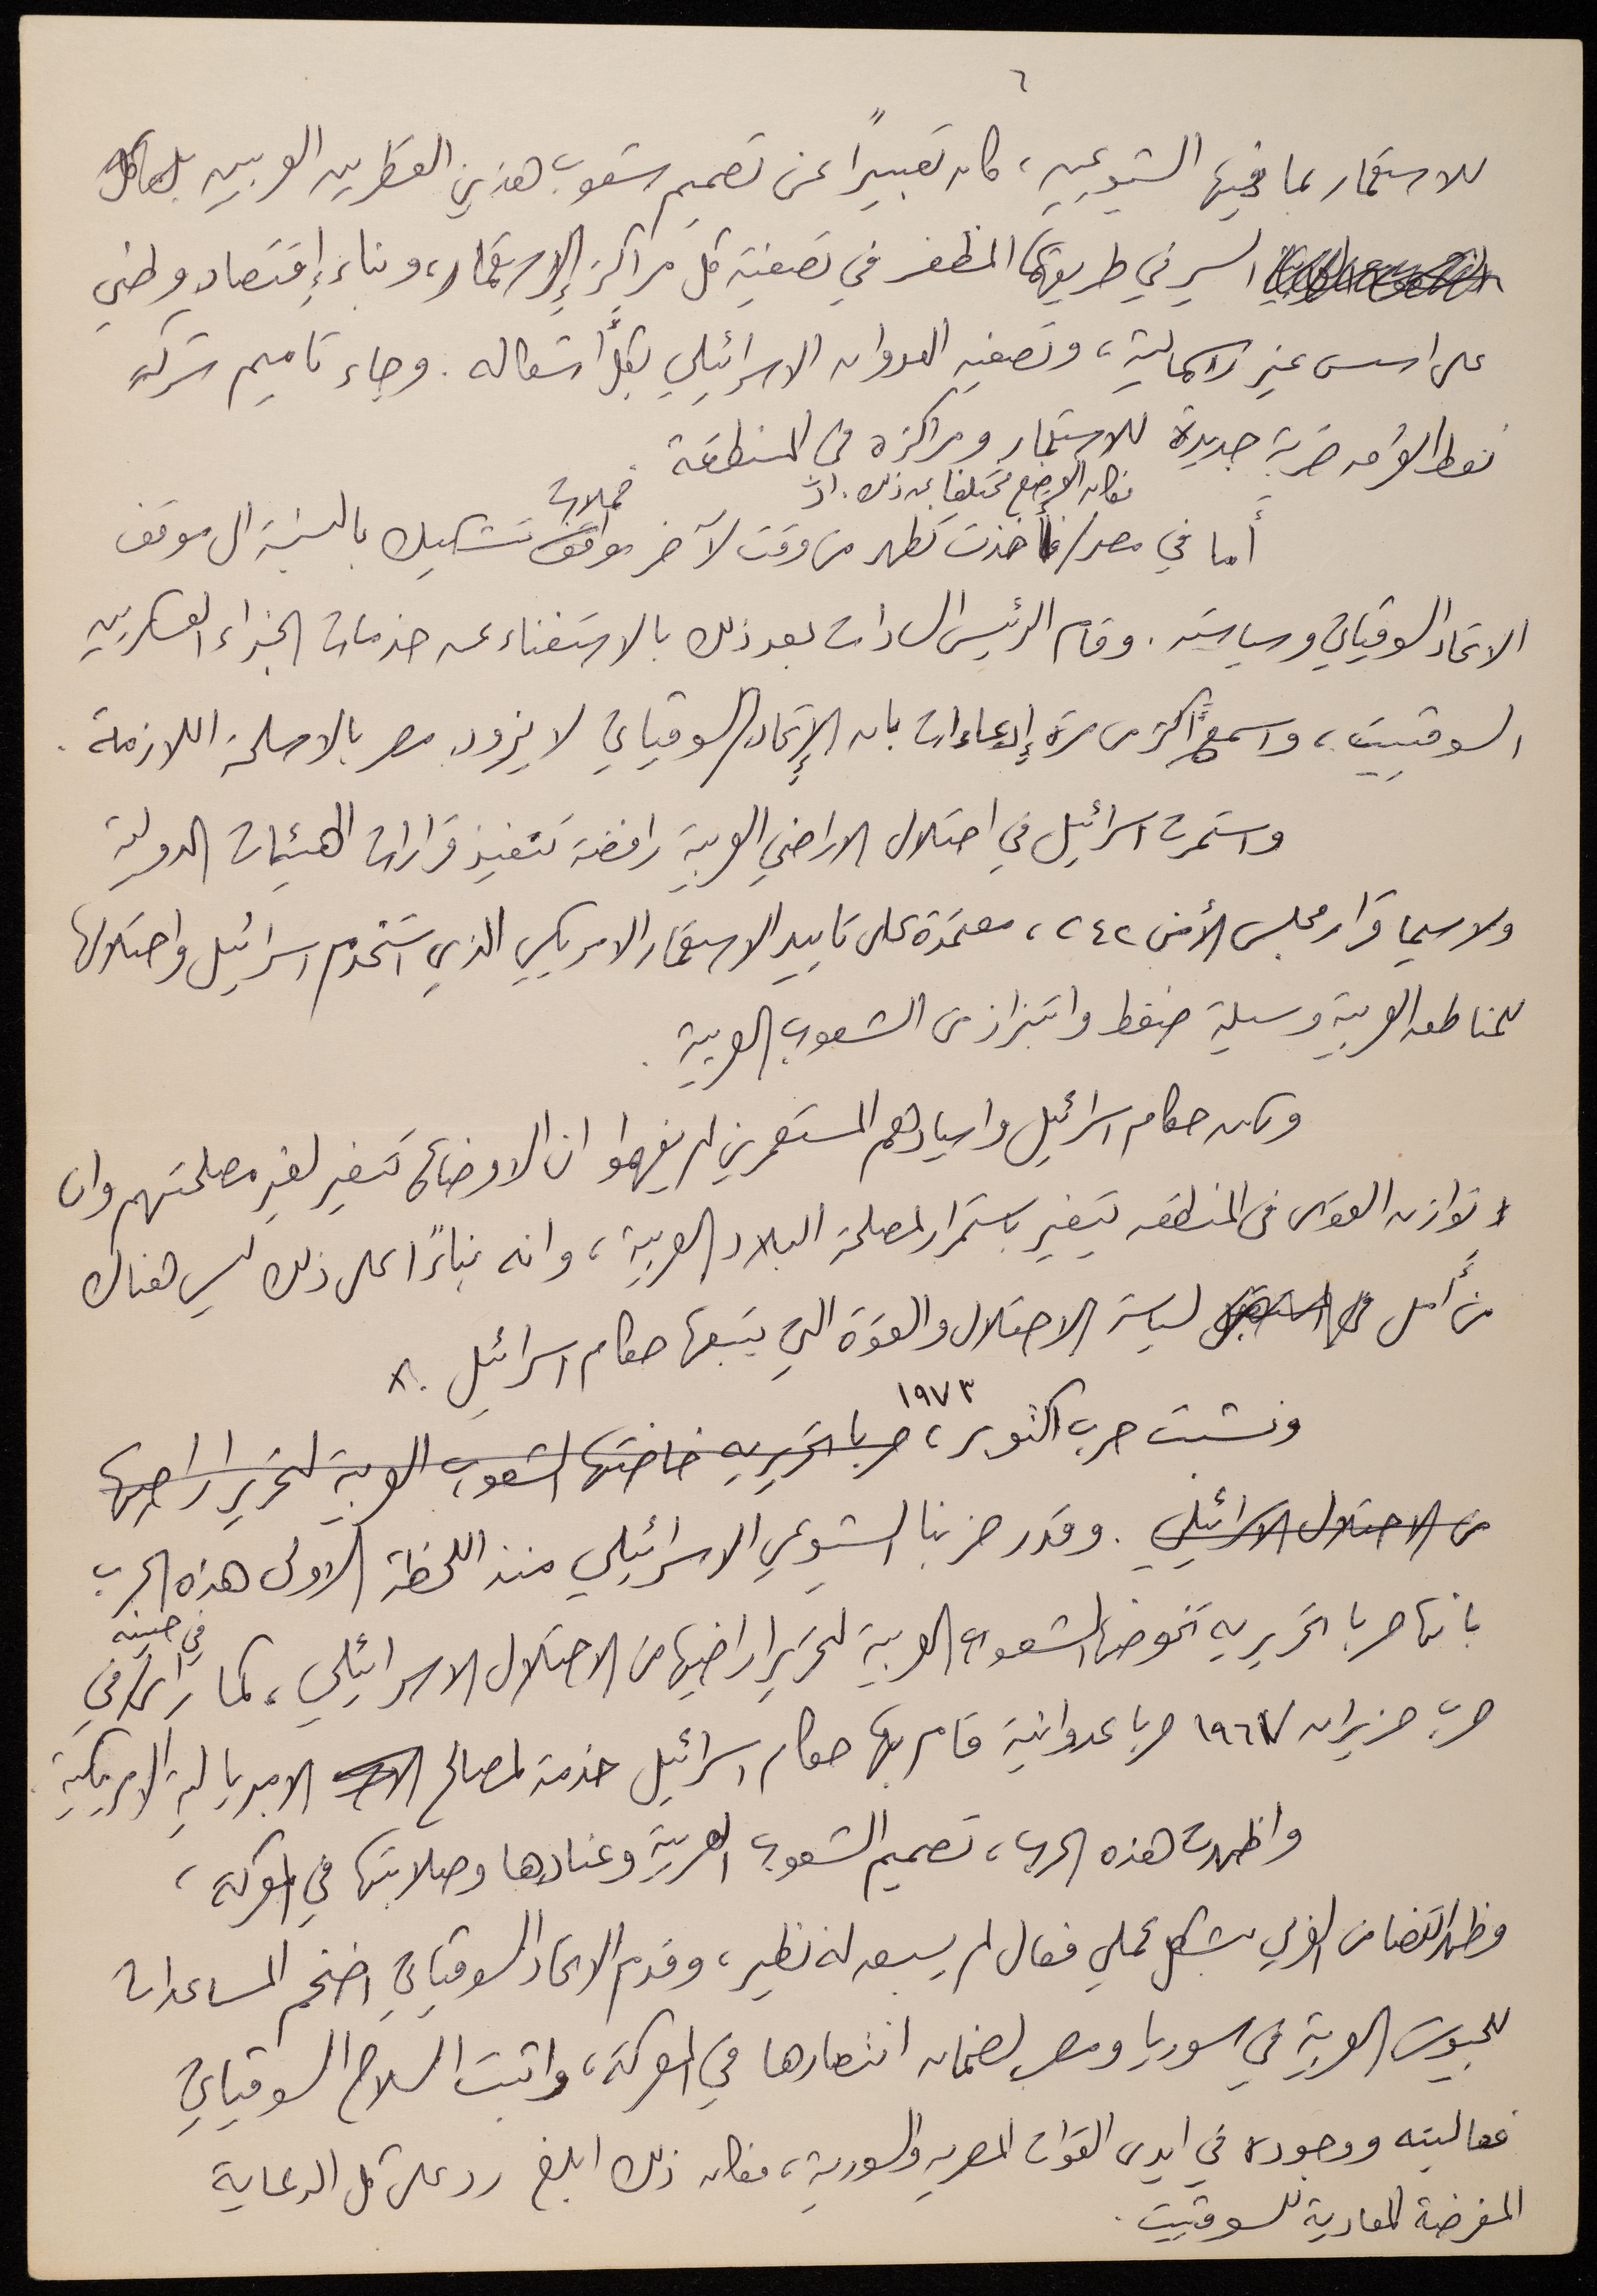 ٦
للاستعمار بما فيها الشيوعيين، كان تعبيراً عن تصميم شعوب هذين القطرين العربيين
السير في طريقهما المظفر في تصفية كل مراكز الإستعمار، وبناء إقتصاد وطني
على اسس غير رأسمالية، وتصفية العدوان الاسرائيلي بكل أشكاله. وجاء تاميم شركة
نفط العراق ضربة جديدة للاستعمار ومراكزه في المنطقة.
فكان الوضع مختلفا عن ذلك. اذ
حملات
أما في مصر/ أخذت تظهر من وقت لآخر مواقف تشكيك بالنسبة الى موقف
الاتحاد السوقياتي وسياسته. وقام الرئيس السادات بعد ذلك بالاستغناء عن خدمات الخبراء العسكريين
السوقييت، واسمع أكثر من مرة إدعاءات بان الإتحاد السوقياتي لا يزود مصر بالاسلحة اللازمة.
واستمرت اسرائيل في احتلال الاراضي العربية رافضة تنفيذ قرارات الهيئات الدولية
ولاسيما قرار مجلس الأمن ٢٤٢، معتمدة على تاييد الاستعمار الامريكي الذي استخدم اسرائيل واحتلالها
للمناطق العربية وسيلة ضغط وابتزاز من الشعوب العربية.
ولكن حكام اسرائيل واسيادهم المستعمرين لم يفهموا ان الاوضاع تتغير لغير مصلحتهم وان
توازن القوى في المنطقة يتغير باستمرار لمصلحة البلاد العربية، وانه بناءً على ذلك ليس هناك
من أمل لسياسة الاحتلال والقوة التي يتبعها حكام اسرائيل.
١٩٧٣
ونشبت حرب اكتوبر، حربا تحريرية خاضتها الشعوب العربية لتحرير اراضيها
من الاحتلال الاسرائيلي. وقدر حزبنا الشيوعي الاسرائيلي منذ اللحظة الاولى هذه الحرب
بانها حربا تحريرية تخوضها الشعوب العربية لتحرير اراضيها من الاحتلال الاسرائيلي، كما رأى في
في حينه
حرب حزيران ١٩٦٧ حربا عدوانية قام بها حكام اسرائيل خدمة لمصالح الامبريالية الامريكية.
واظهرت هذه الحرب، تصميم الشعوب العربية وعنادها وصلابتها في المعركة،
وظهر التضامن العربي بشكل عملي فعال لم يسبق له نظير، وقدم الاتحاد السوقياتي اضخم المساعدات
للجيوش العربية في سوريا ومصر لضمان انتصارها في المعركة، واثبت السلاح السوقياتي
فعاليته ووجوده في ايدي القوات المصرية والسورية، فكان ذلك ابلغ رد على كل الدعاية
المغرضة المعادية للسوقييت.